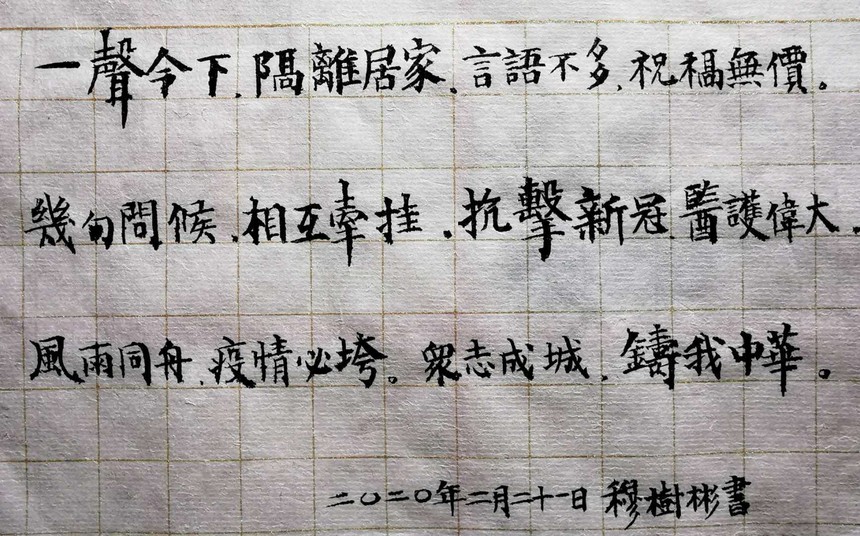 一聲令下,隔離居家,言語不多,祝福無價。
幾句問候,相互牽挂,抗擊新冠,醫護偉大,
風雨同舟,疫情必垮。衆志成城,鑄我中華。
二〇二〇年二月二十一日 穆樹彬書